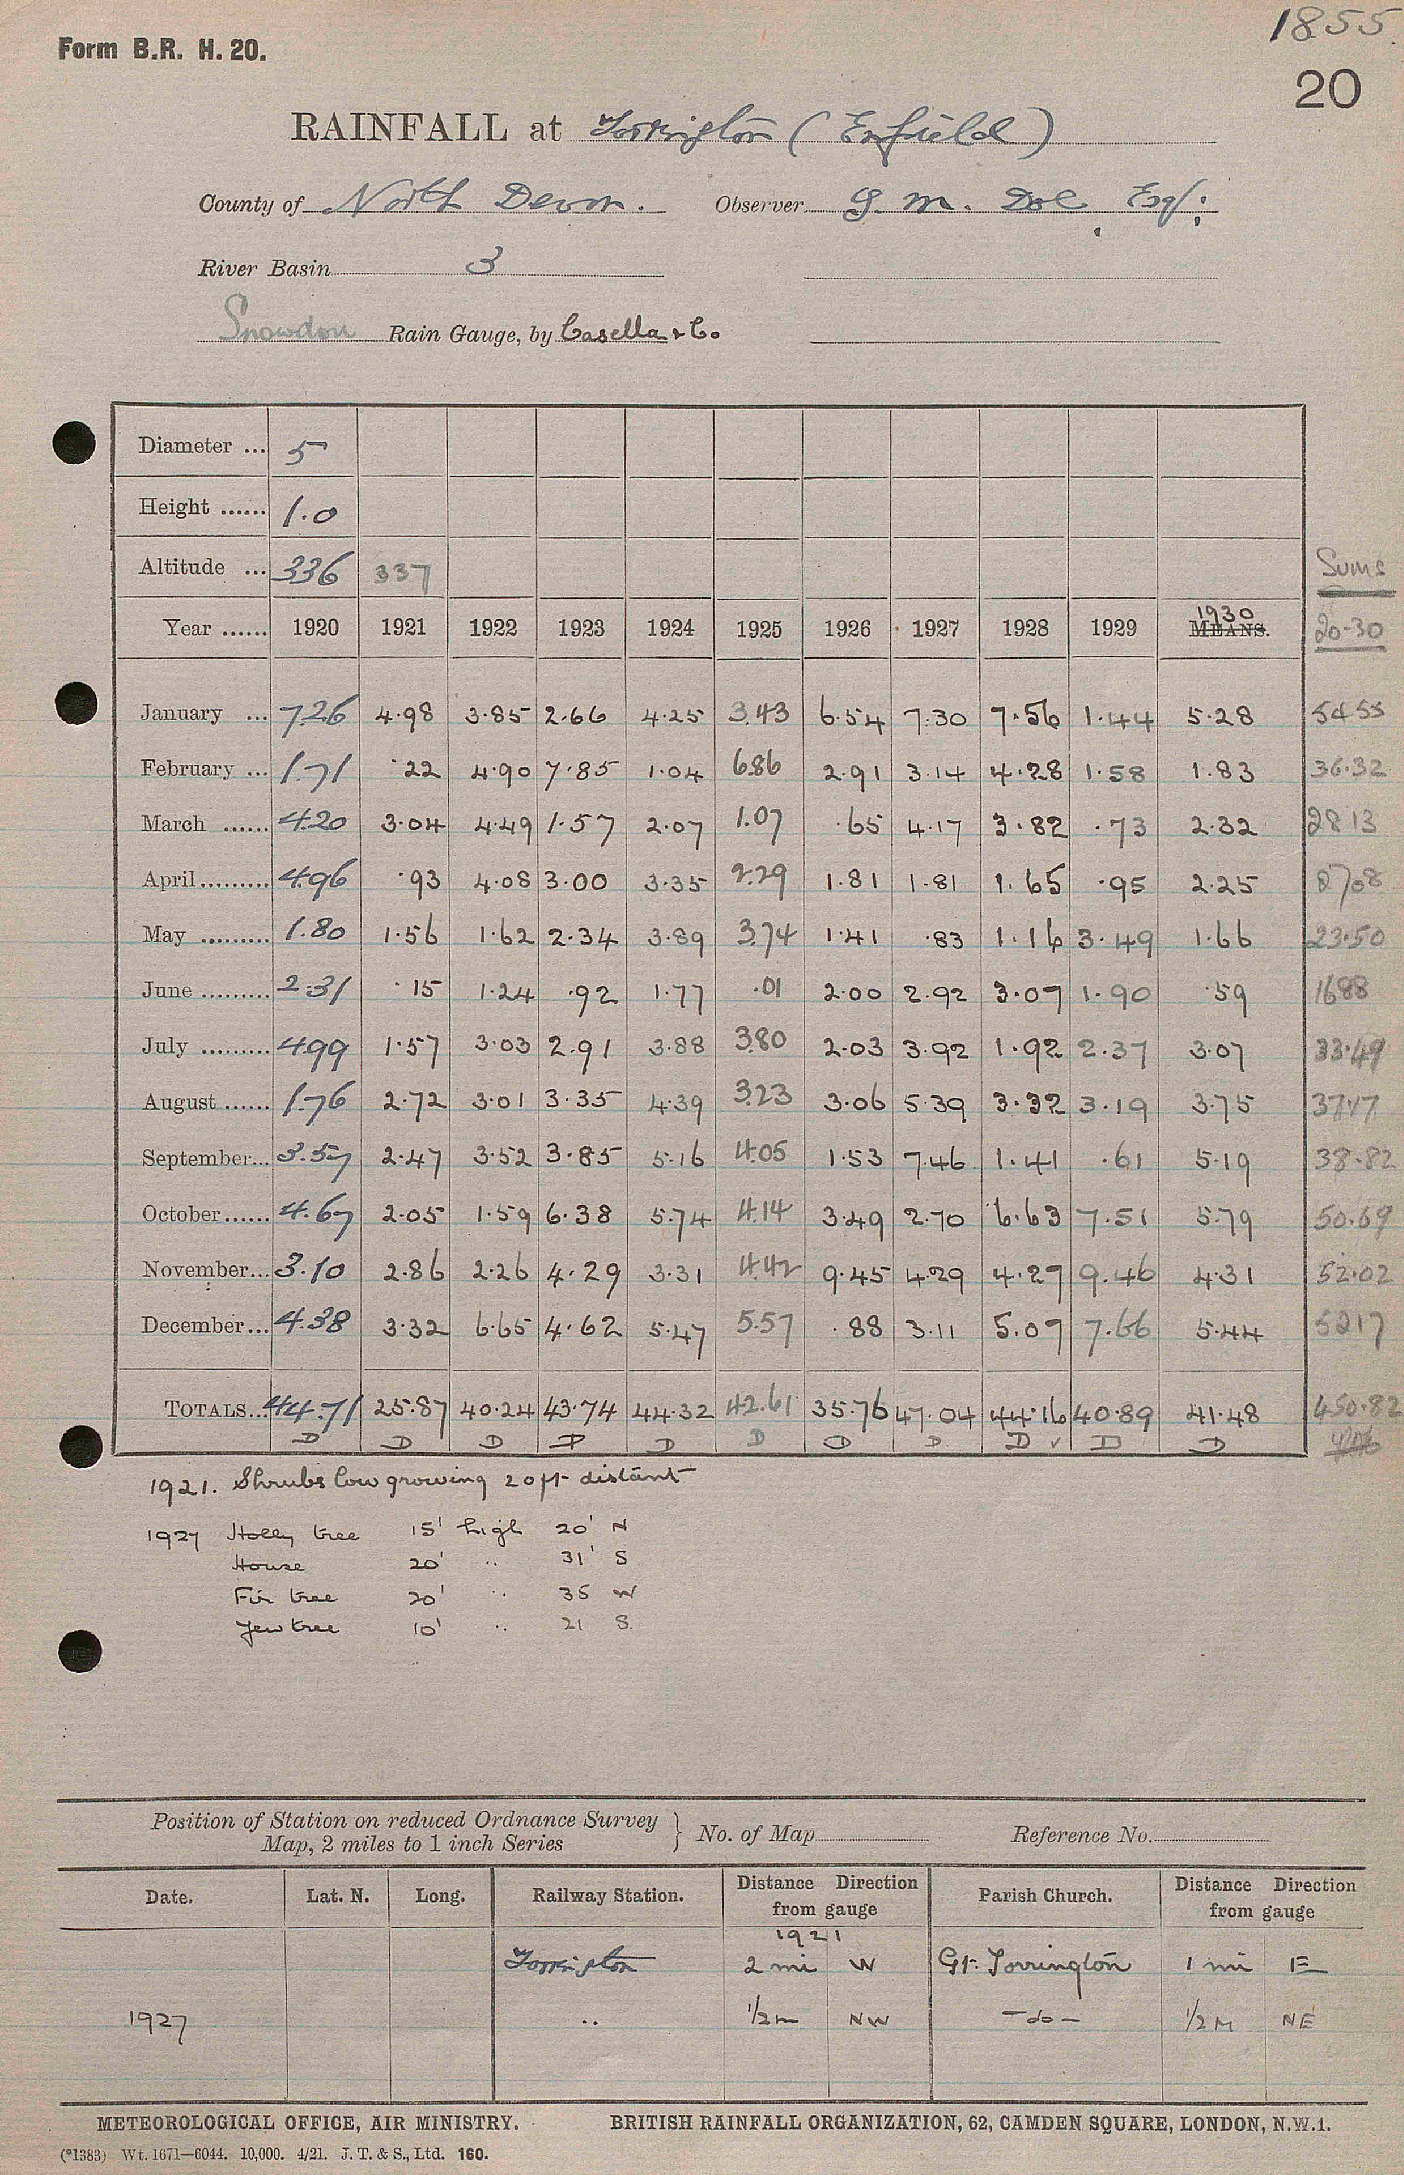 1855.
Form B.R. H. 20.
20
RAINFALL at Torrington (Enfield)
County of North Devon. Observer G. M. Doe, Esq:
River Basin 3
Snowdon Rain Gauge, by Casella & Co
Diameter ... 5
Height ...... 1.0
Altitude ... 336 337
Sums
Year ...... 1920 1921 1922 1923 1924 1925 1926 1927 1928 1929 1930 MEANS. 20-30
January ... 7.26 4.98 3.85 2.66 4.25 3.43 6.54 7.30 7.56 1.44 5.28 54 55
February ... 1.71 .22 4.90 7.85 1.04 6.86 2.91 3.14 4.28 1.58 1.83 36.32
March ...... 4.20 3.04 4.49 1.57 2.07 1.07 .65 4.17 3.82 .73 2.32 28 13
April ......... 4.96 .93 4.08 3.00 3.35 2.29 1.81 1.81 1.65 .95 2.25
May ......... 1.80 1.56 1.62 2.34 3.89 3.74 1.41 .83 1.16 3.49 1.66 23.50
June ......... 2.31 .15 1.24 .92 1.77 .01 2.00 2.92 3.07 1.90 .59 1688
July ......... 4.99 1.57 3.03 2.91 3.88 3.80 2.03 3.92 1.92 2.37 3.07 33.49
August ...... 1.76 2.72 3.01 3.35 4.39 3.23 3.06 5.39 3.32 3.19 3.75 37.17
September... 3.57 2.47 3.52 3.85 5.16 4.05 1.53 7.46 1.41 .61 5.19 38.82
October ...... 4.67 2.05 1.59 6.38 5.74 4.14 3.49 2.70 6.63 7.51 5.79 50.69
November... 3.10 2.86 2.26 4.29 3.31 4.42 9.45 4.29 4.27 9.46 4.31 52.02
December... 4.38 3.32 6.65 4.62 5.47 5.57 .88 3.11 5.07 7.66 5.44 5217
TOTALS... 44.71 25.87 40.24 43.74 44.32 42.61 35.76 47.04 44.16 40.89 41.48 450.82
D D D D D D D D D ✓ D D
1921. Shrubs low growing 20 ft distant
1927 Holly tree 15' high 20' N
House 20' .. 31' S
Fir tree 20' .. 35 W
Yew tree 10' .. 21 S.
Position of Station on reduced Ordnance Survey Map, 2 miles to 1 inch Series } No. of Map Reference No.
Date. Lat. N. Long. Railway Station. Distance Direction from gauge Parish Church. Distance Direction from gauge
1921
Torrington 2 mi W Gt. Torrington 1 mi E
1927 .. 1/2 m NW -do- 1/2 M NE
METEOROLOGICAL OFFICE, AIR MINISTRY. BRITISH RAINFALL ORGANIZATION, 62, CAMDEN SQUARE, LONDON, N.W.1.
(*1383) Wt. 1671—6044. 10,000. 4/21. J. T. & S., Ltd. 160.